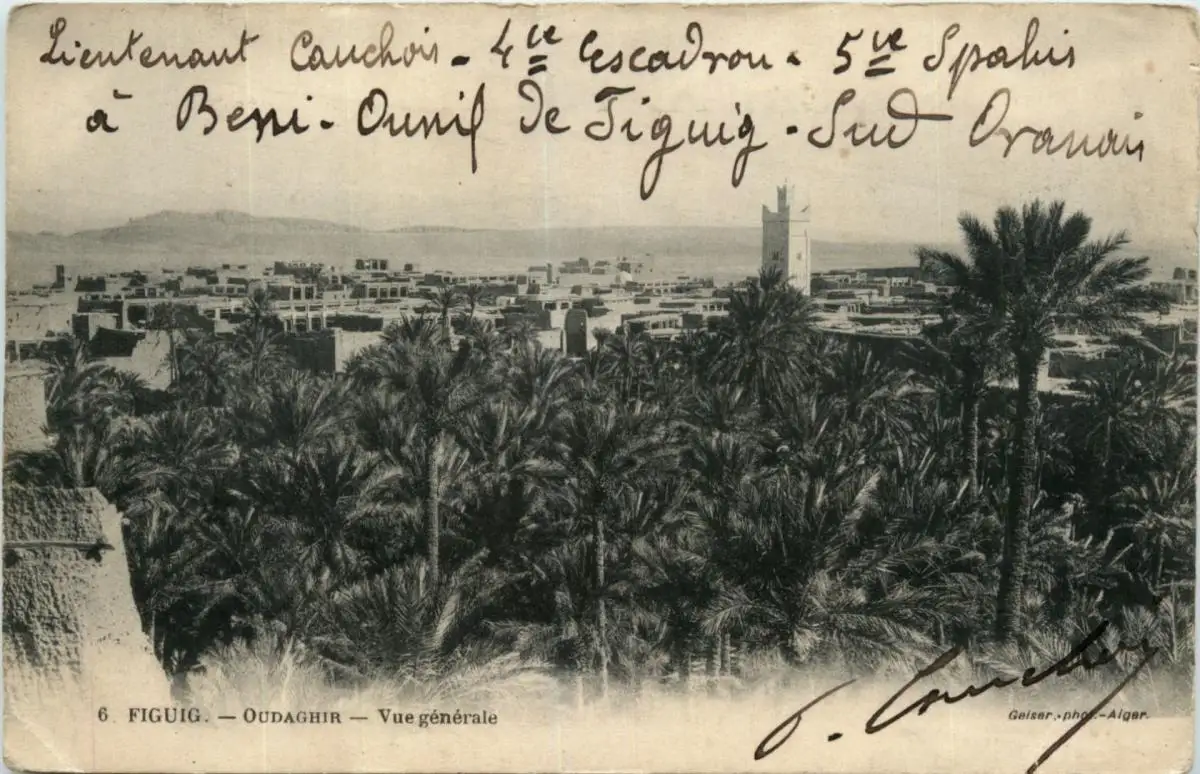 Lieutenant Cauchois - 4ce Escadron - 5ve Spahis
à Beni-Ounif de Figuig - Sud Oranais
6 FIGUIG. — OUDAGHIR — Vue générale
Geiser, phot.-Alger.